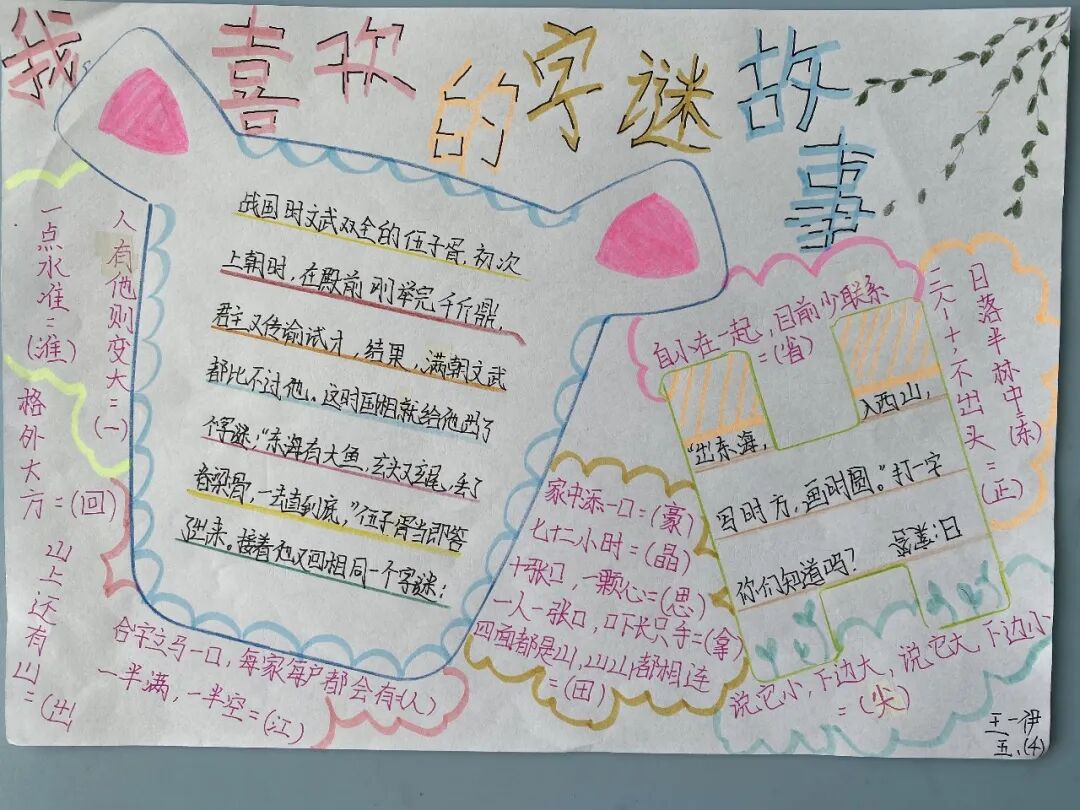 我喜欢的字谜故事
战国时文武双全的伍子胥,初次
上朝时,在殿前刚举完千斤鼎,
君主又传谕试才,结果,满朝文武
都比不过他。这时国相就给他出了
个字谜:“东海有大鱼,
脊梁骨,一去直到底,”伍子胥当即答
了出来。接着他又回相同一个字谜:
“出东海,
入西山,
写时方,画时圆。”打一字
你们知道吗?
答案:日
人有他则变大=(一)
一点水准=(准)
格外大方=(回)
山上还有山=(出)
合字立马一口,每家每户都会有(人)
一半满,一半空=(江)
家中添一口=(豪)
七十二小时=(晶)
十张口,一颗心=(思)
一人一张口,口下长只手=(拿)
四面都是山,山山都相连
=(田)
自小在一起,目前少联系
=(省)
日落半林中=(东)
三个十,不出头=(正)
说它小,下边大,说它大,下边小
=(尖)
王一伊
五.(4)